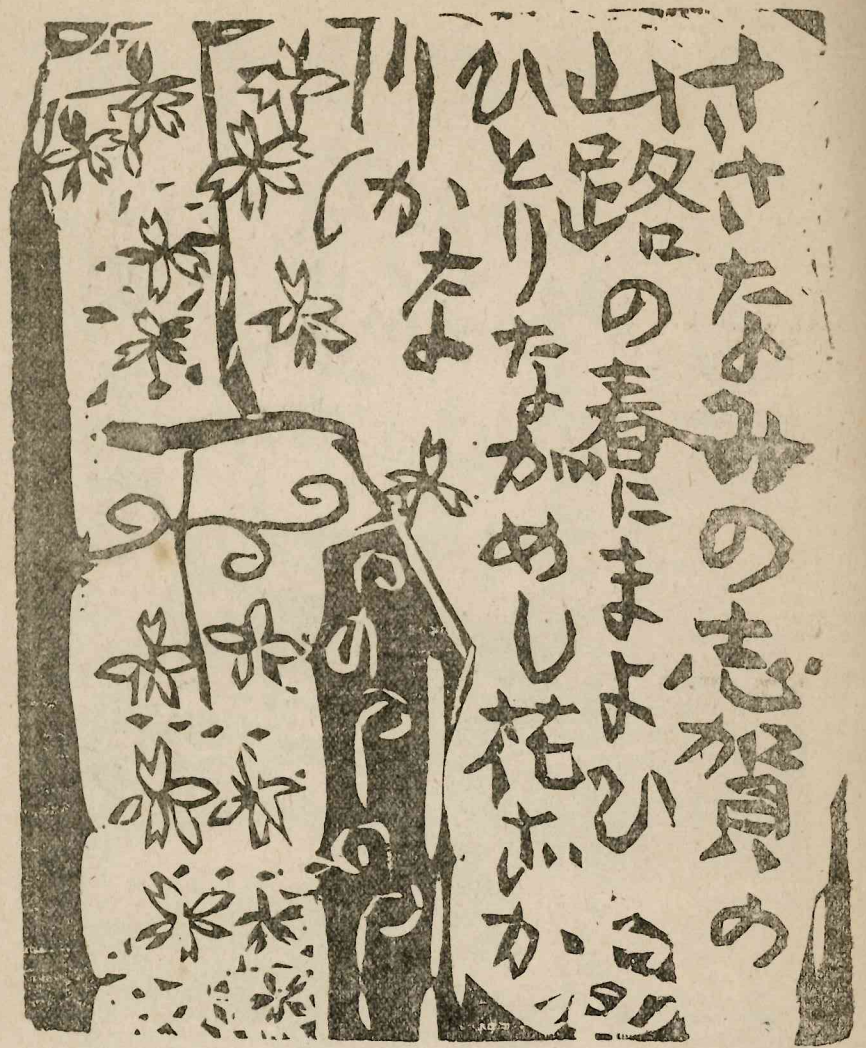 ささなみの志賀の
山路の春にまよひ
ひとりながめし花ざか
りかな